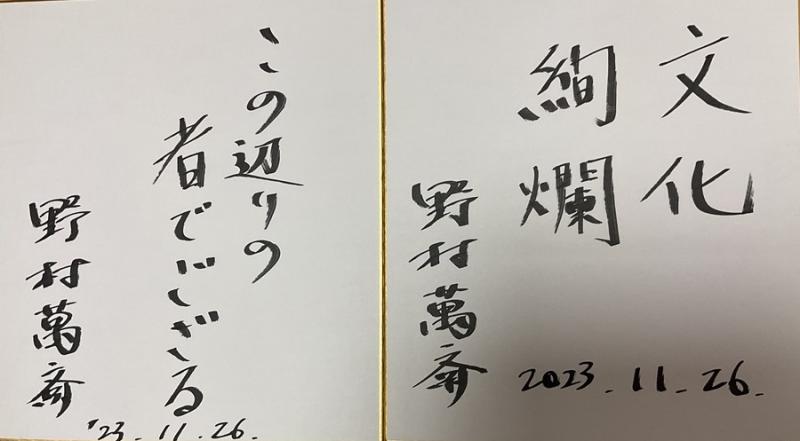 文化
絢爛
野村萬斎
2023.11.26.
この辺りの
者でござる
野村萬斎
'23.11.26.